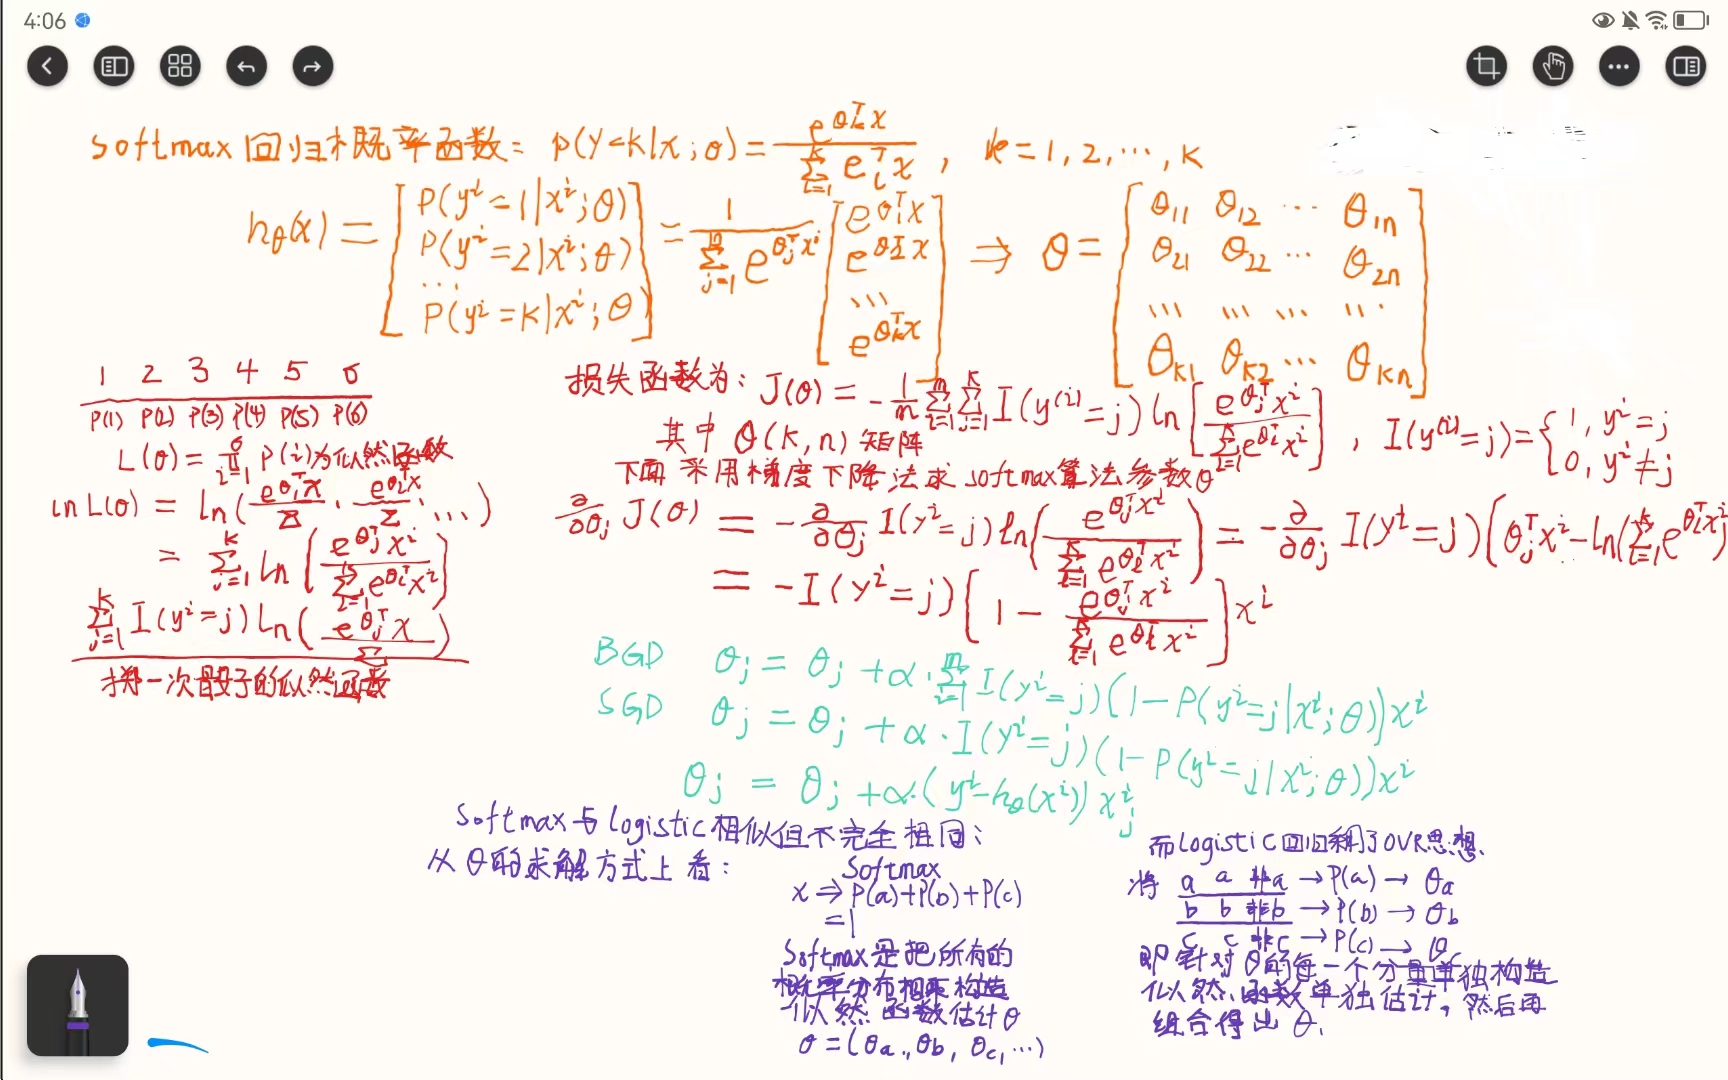 4:06
softmax回归概率函数: p(y=k|x;θ)= e^{θ_k^T x} / Σ_{l=1}^{k} e_l^T x , k=1,2,…,K
h_θ(x) = [P(y^i=1|x^i;θ) P(y^i=2|x^i;θ) … P(y^i=k|x^i;θ)] = 1 / Σ_{j=1}^{n} e^{θ_j^T x^i} [e^{θ_1^T x} e^{θ_2^T x} … e^{θ_k^T x}] ⇒ θ = [θ11 θ12 … θ1n θ21 θ22 … θ2n … … … … θk1 θk2 … θkn]
1 2 3 4 5 6
P(1) P(2) P(3) P(4) P(5) P(6)
L(θ) = π_{i=1}^{6} P(i)为似然函数
ln L(θ) = ln( e^{θ_1^T x}/Σ · e^{θ_2^T x}/Σ …)
= Σ_{j=1}^{k} ln [ e^{θ_j^T x^i} / Σ_{i=1}^{k} e^{θ_i^T x^i} ]
Σ_{j=1}^{k} I(y^i=j) ln( e^{θ_j^T x} / Σ )
掷一次骰子的似然函数
损失函数为: J(θ) = -1/m Σ_{i=1}^{m} Σ_{j=1}^{k} I(y^{(i)}=j) ln [ e^{θ_j^T x^i} / Σ_{l=1}^{k} e^{θ_l^T x^i} ] , I(y^{(i)}=j)= { 1, y^i=j 0, y^i≠j
其中 θ(k,n) 矩阵
下面采用梯度下降法求softmax算法参数θ
∂/∂θ_j J(θ) = -∂/∂θ_j I(y^i=j) ln( e^{θ_j^T x^i} / Σ_{l=1}^{k} e^{θ_l^T x^i} ) = -∂/∂θ_j I(y^i=j)(θ_j^T x^i - ln(Σ_{l=1}^{k} e^{θ_l^T x^i})
= -I(y^i=j)[1 - e^{θ_j^T x^i} / Σ_{l=1}^{k} e^{θ_l^T x^i}] x^i
BGD θ_j = θ_j + α·Σ_{i=1}^{m} I(y^i=j)(1-P(y^i=j|x^i;θ))x^i
SGD θ_j = θ_j + α·I(y^i=j)(1-P(y^i=j|x^i;θ))x^i
θ_j = θ_j + α·(y^i-h_θ(x^i)) x_j^i
Softmax与logistic相似但不完全相同:
从θ的求解方式上看:
Softmax
x ⇒ P(a)+P(b)+P(c)
=1
Softmax是把所有的
概率分布相乘构造
似然函数估计θ
θ=(θa, θb, θc, …)
而Logistic回归利了OVR思想
将 a a 非a → P(a) → θa
b b 非b → P(b) → θb
c c 非c → P(c) → θc
即针对θ的每一个分量单独构造
似然函数单独估计,然后再
组合得出θ.